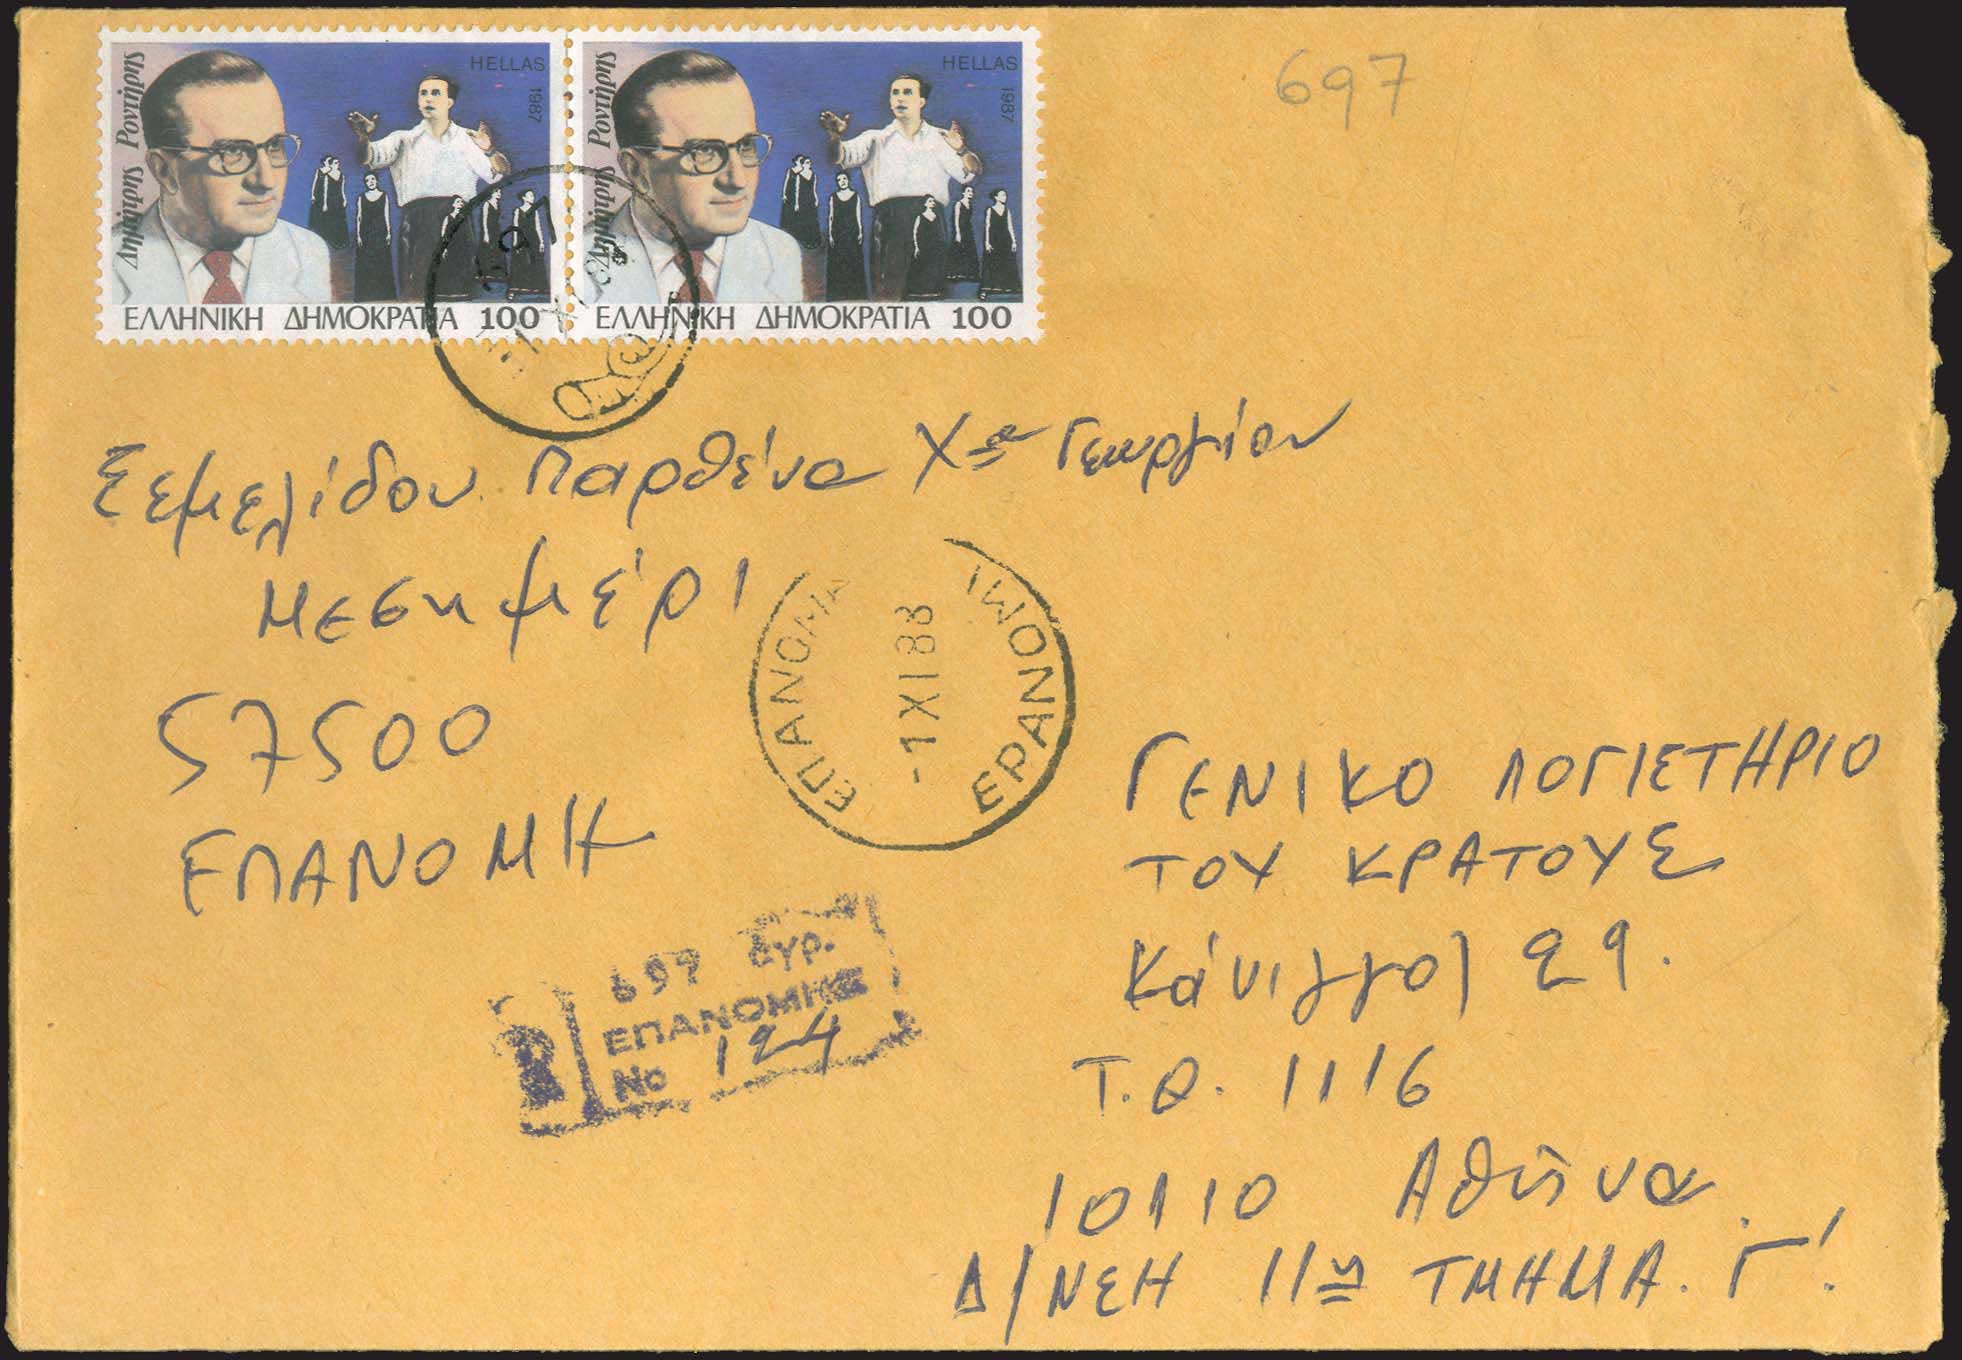 697
Δημήτρης Ροντήρης
HELLAS
1987
ΕΛΛΗΝΙΚΗ ΔΗΜΟΚΡΑΤΙΑ 100
Δημήτρης Ροντήρης
HELLAS
1987
ΕΛΛΗΝΙΚΗ ΔΗΜΟΚΡΑΤΙΑ 100
697
Σεμελίδου Παρθένα Χα Γεωργίου
Μεσημέρι
57500
ΕΠΑΝΟΜΗ
ΕΠΑΝΟΜΗ
-1 XI 88
EPANOMI
697 ΑΓΡ.
ΕΠΑΝΟΜΗΣ
R No 124
ΓΕΝΙΚΟ ΛΟΓΙΣΤΗΡΙΟ
ΤΟΥ ΚΡΑΤΟΥΣ
Κάνιγγος 29.
Τ.Θ. 1116
10110 Αθήνα
Δ/ΝΣΗ 11η ΤΜΗΜΑ. Γ'.